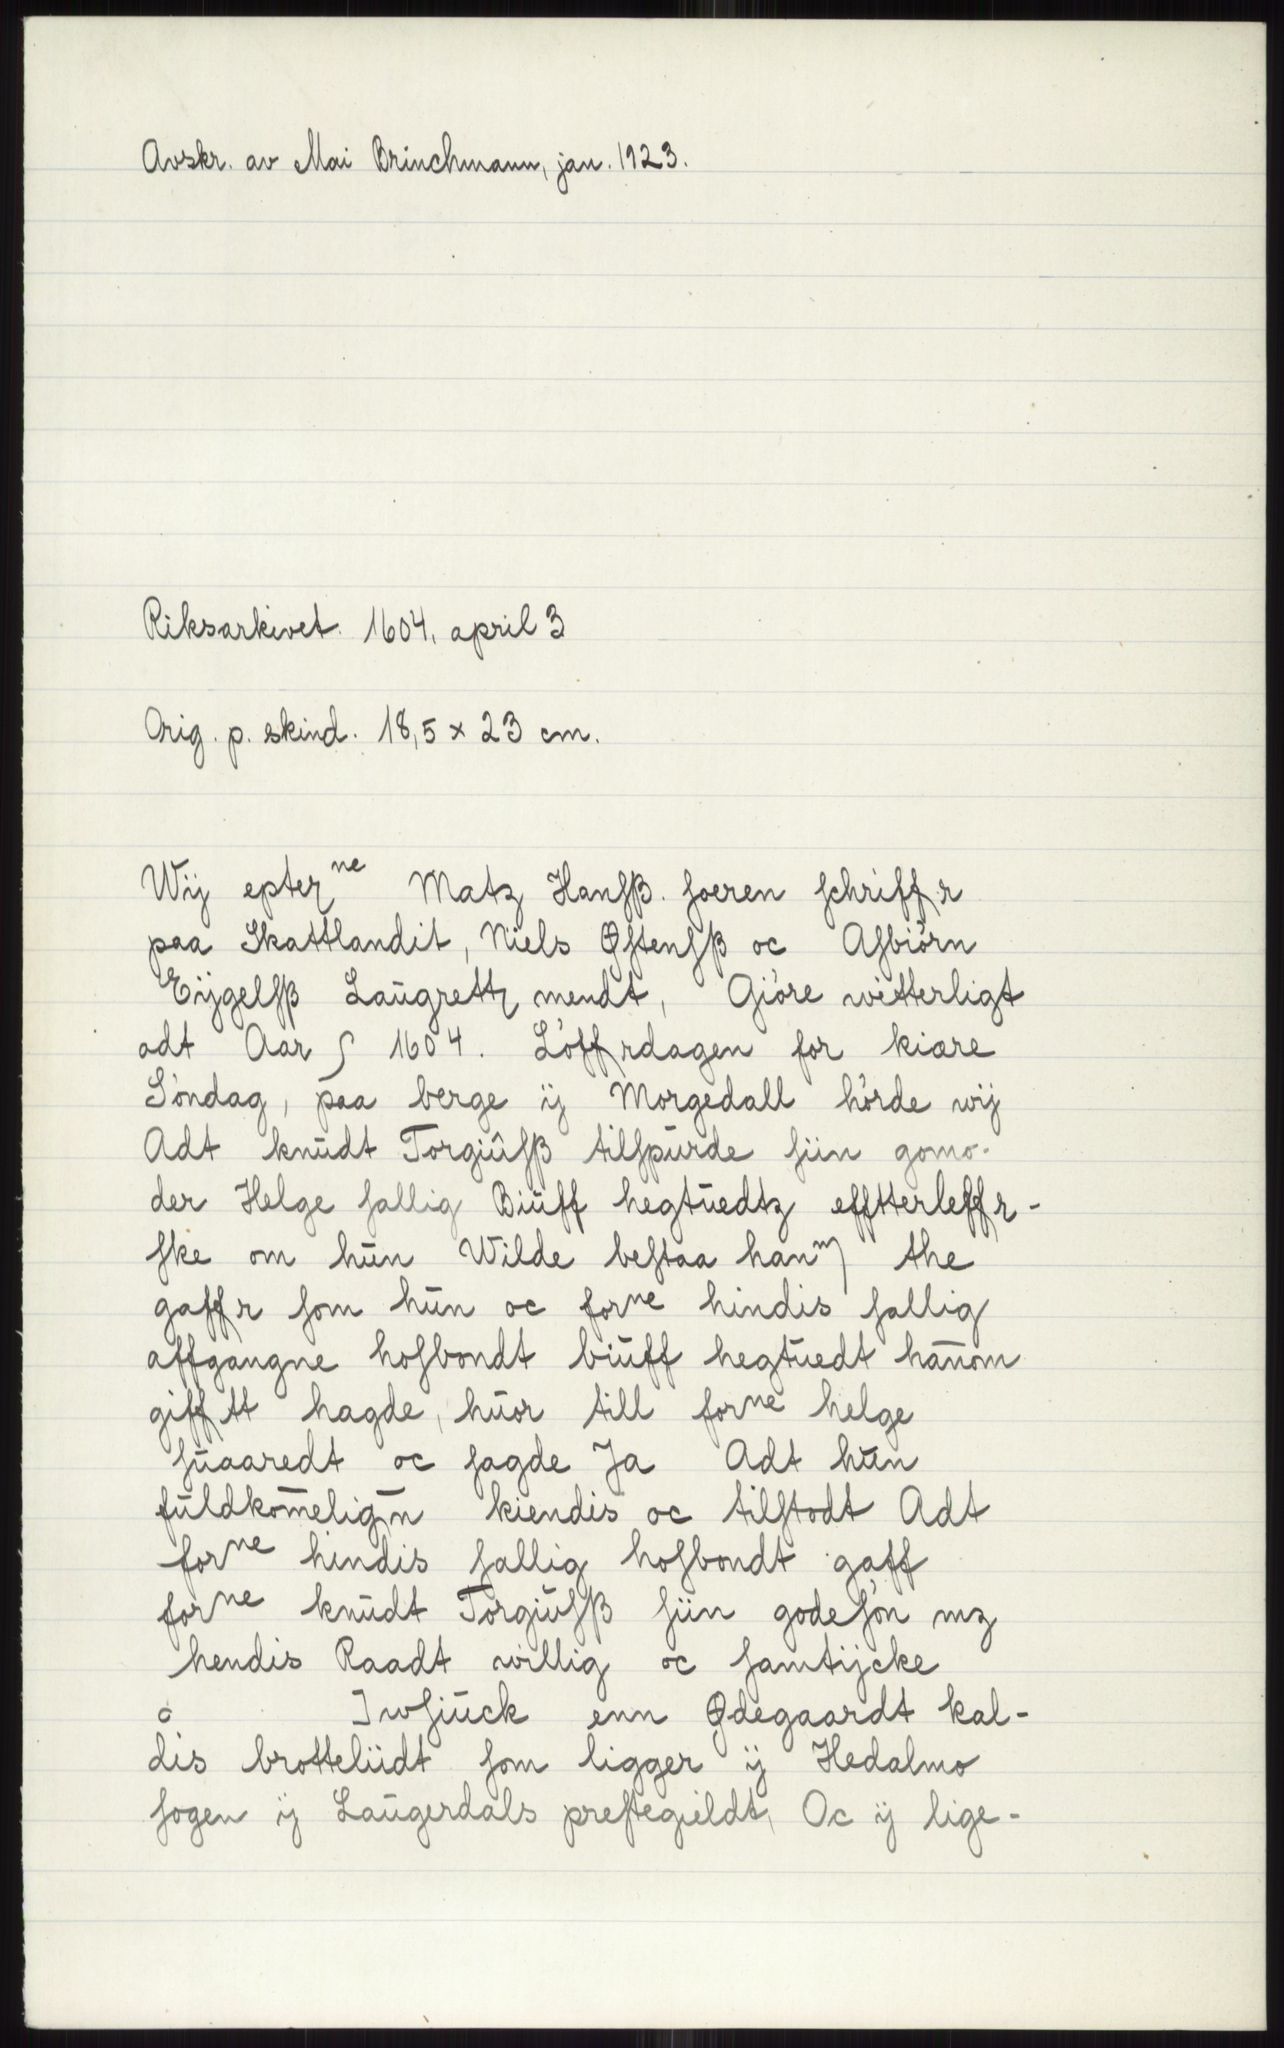 Avskr. av Mai Brinchmann, jan. 1923.
Riksarkivet. 1604, april 3
Orig. p. skind. 18,5 × 23 cm.
Wij epter ne Matz Hanſß. ſoeren ſchriffr
paa Skattlandit, Niels Øſtenſß oc Aſbiörn
Eijgelſß Laŭgrettz mendt, Giöre witterligt
adt Aar 1604. Löffrdagen for kiære
Söndag, paa berge ij Morgedall hörde wij
Adt knŭdt Torgiŭſß tilſpŭrde ſiin gomo-
der Helge ſallig Biŭff hegtŭedtz efftterleffr-
ſke om hŭn Wilde beſtaa hanm the
gaffr ſom hŭn oc forne hindis ſallig
affgangne hoſbondt biŭff hegtŭedt hañom
gifftt hagde, hŭor till forne helge
ſŭaaredt oc ſagde Ja Adt hŭn
fŭldkom̄elign̄ kiendis oc tilſtodt Adt
forne hindis ſallig hoſbondt gaff
forne knŭdt Torgiŭſß ſiin godeſön mz
hendis Raadt willig oc ſamtijcke
o Jwſiŭck enn Ødegaardt kal-
dis brotteliidt ſom ligger ij Hedalmo
ſogen ij Laŭgerdals preſtegieldt, Oc ij lige-